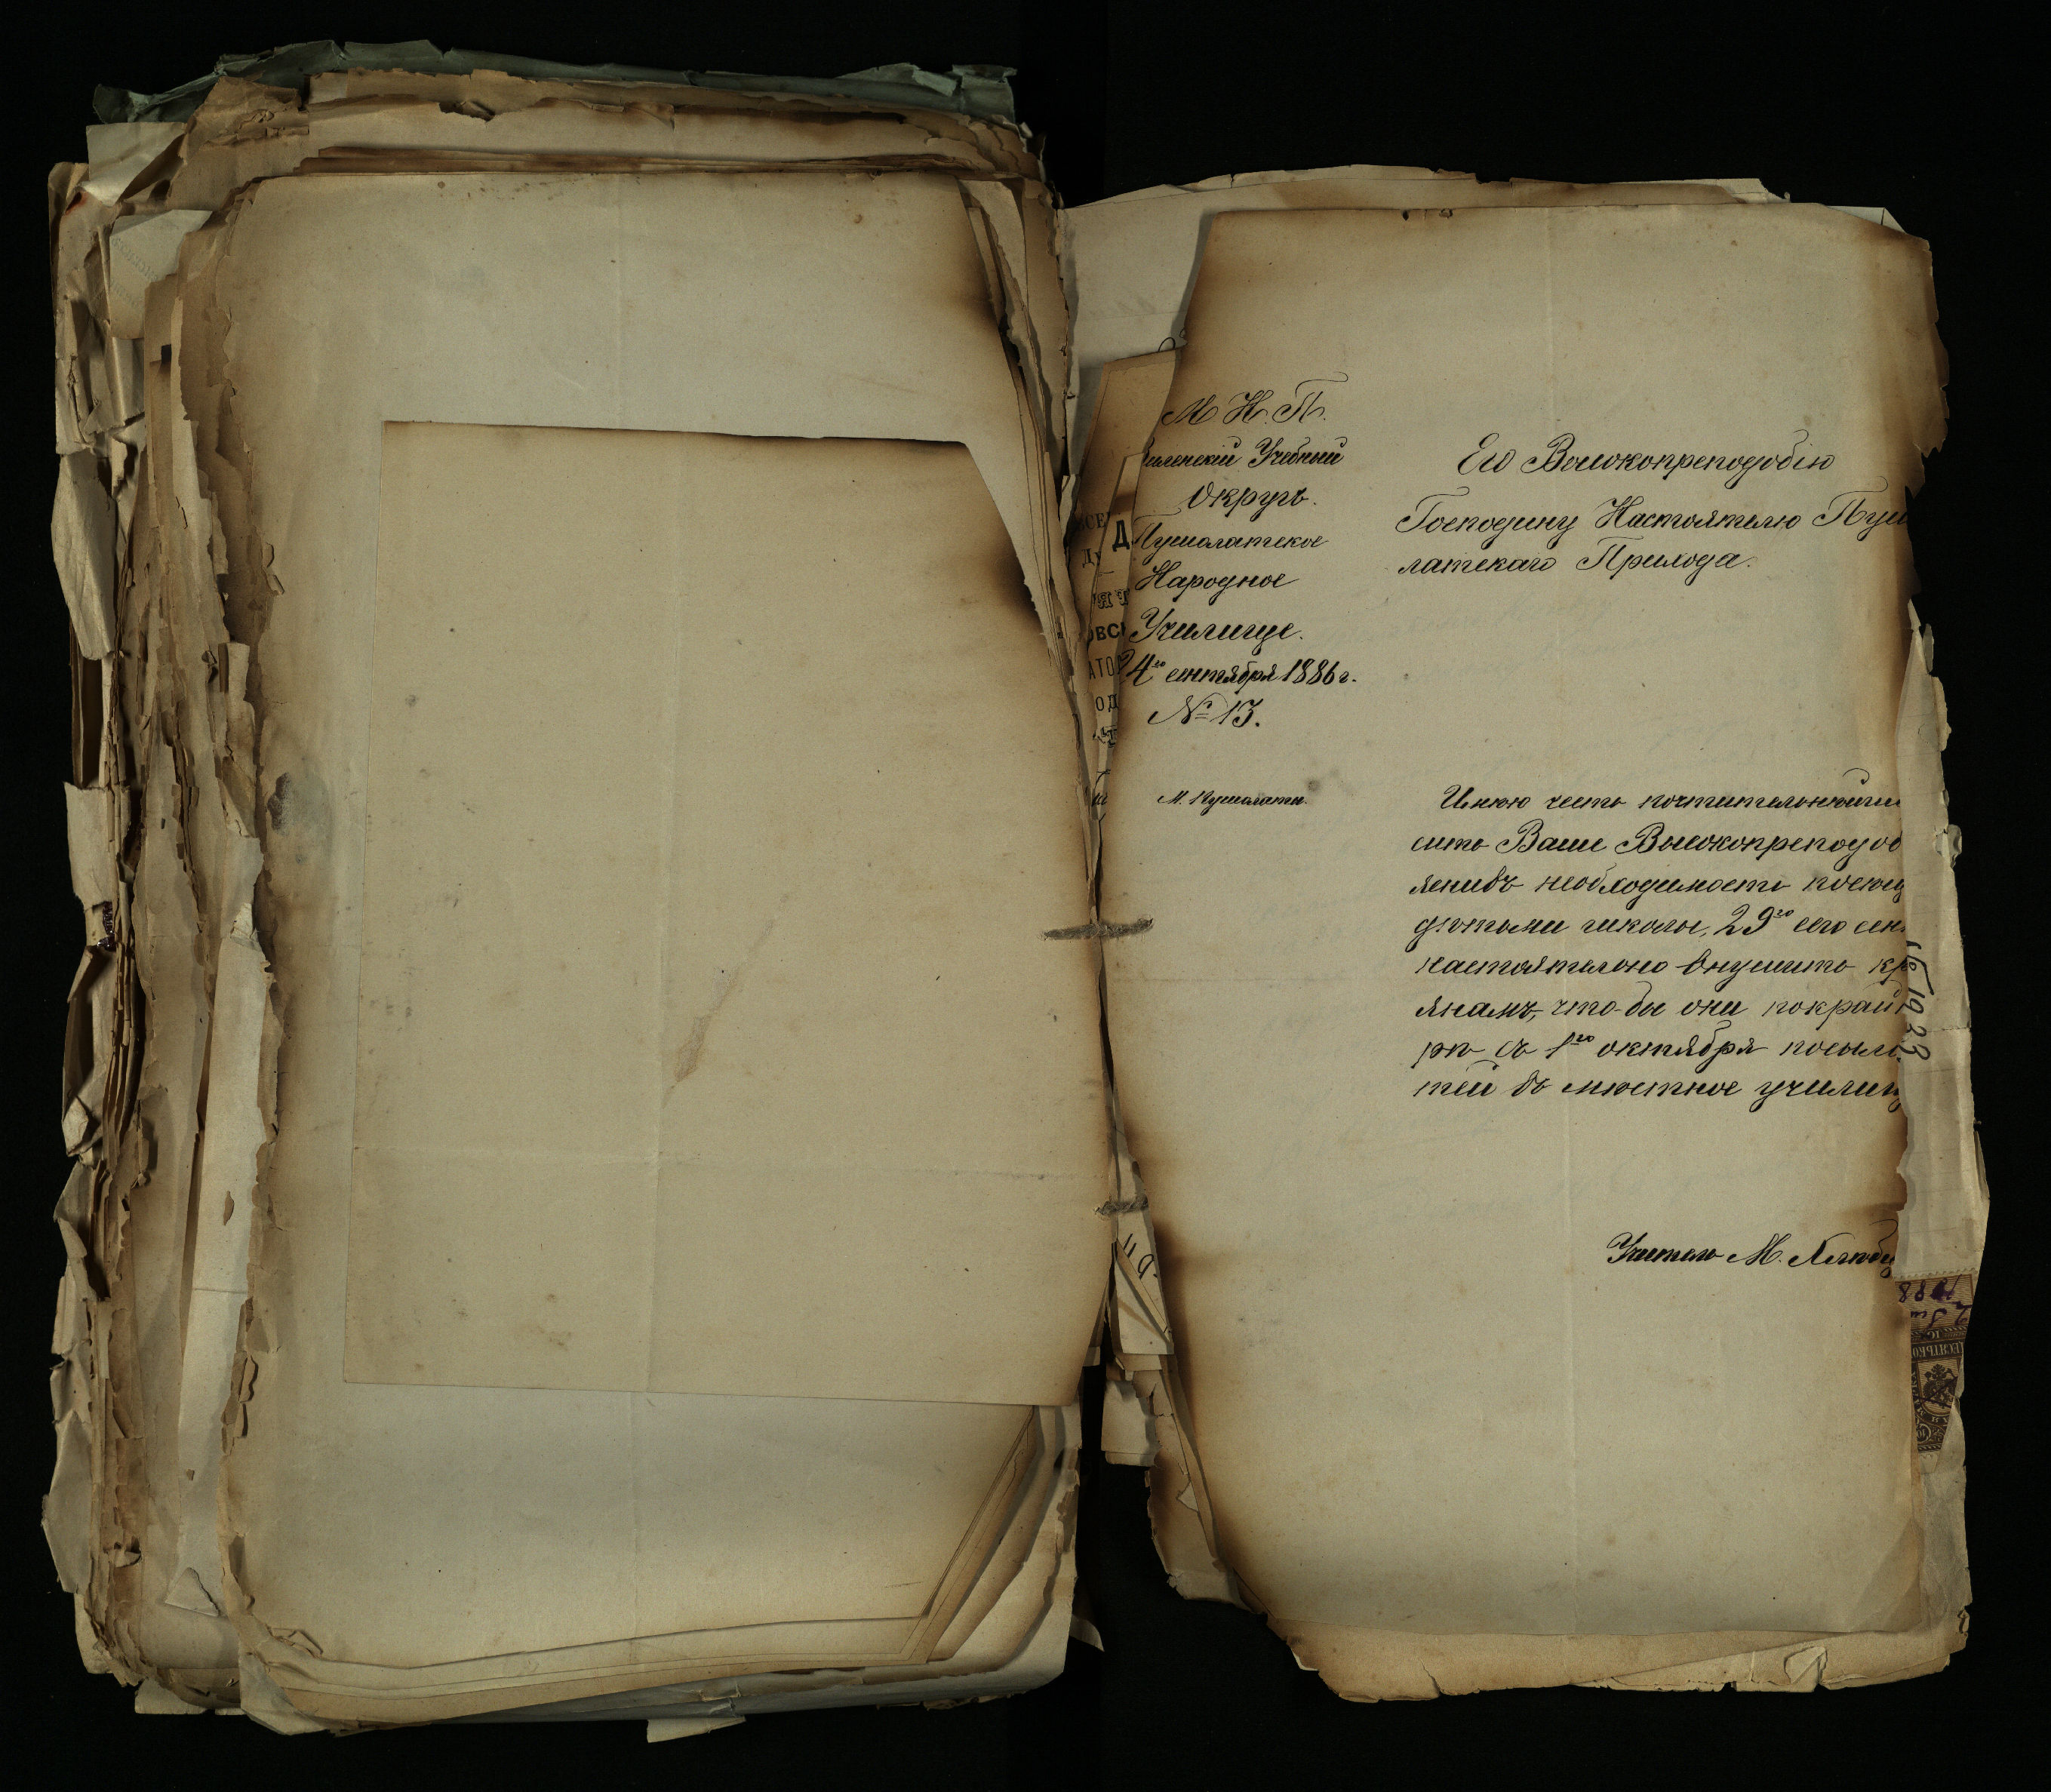 М. Н. П.
Виленскій Учебный
Округъ.
Пушолатское
Народное
Училище.
24го сентября 1886 г.
№ 13.
м. Пушолаты.
Его Высокопреподобію
Господину Настоятелю Пуш
латскаго Прихода.
Имѣю честь почтительнѣйше
сить Ваше Высокопреподоб
яснивъ необходимость посѣщ
дѣтьми школы, 29го сего сен
настоятельно внушить кр
янамъ, что-бы они покрайн
рѣ съ 1го октября посыла
тей въ мѣстное училищ
Учитель М.
1933